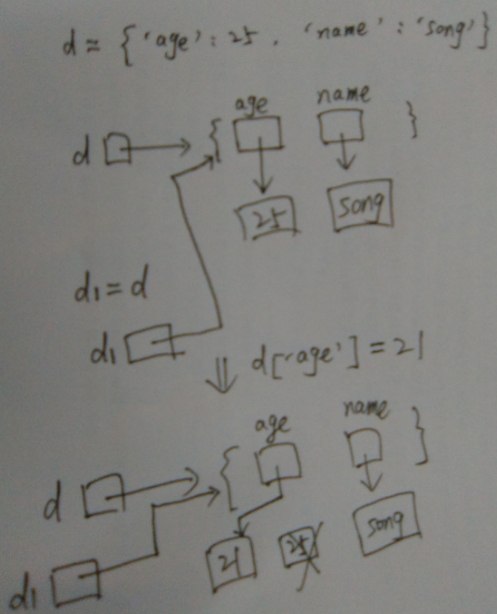 d = {'age': 25, 'name': 'song'}
age name
d { }
25 song
d1 = d
d1
d['age'] = 21
age name
d { }
21 25 song
d1